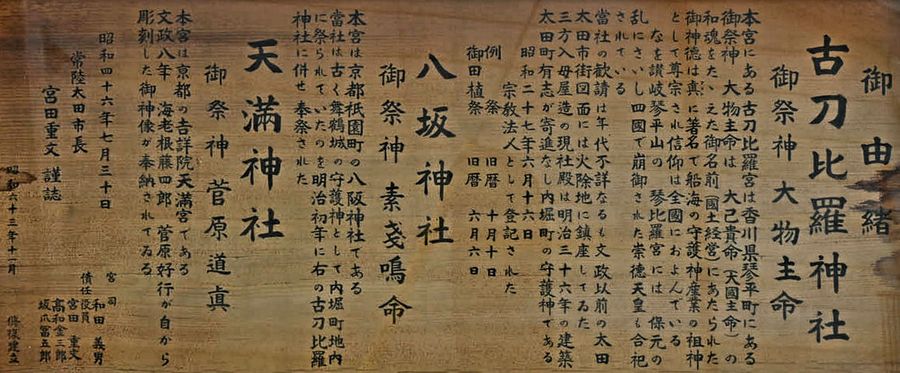 御由緒
古刀比羅神社
御祭神 大物主命
本宮にある古刀比羅宮は香川県琴平町にある
御祭神 大物主命は 大己貴命(大国主命)の
和魂をたゝえた御名前(国土経営)にあたられた
御神徳は真に著名で船海の守護神産業の祖神
として尊宗され信仰は全国におよんでいる
なを讃岐琴平山の 琴比羅宮には 保元の
乱にさいし四國で崩御された崇徳天皇も合祀
されている
當社の歓請は年代不詳なるも文政以前の太田
太田市街図面には火除地に鎮座してゐた
三方入母屋造の現社殿は明治三十六年の建築
太田町有志が寄進なし内堀町の守護神である
昭和二十七年六月十六日
宗教法人として登記された
例祭 旧暦 十月十日
御田植祭 旧暦 六月六日
八坂神社
御祭神 素戔鳴命
本宮は京都祇園町の八阪神社である
當社は古く舞鶴城の守護神として内堀町地内
に祭られていたのを明治初年に右の古刀比羅
神社に併せ奉祭された
天満神社
御祭神 菅原道眞
本宮は京都の吉詳院天満宮である
文政八年 海老根藤四郎 菅原好行が自から
彫刻した御神像が奉納されてゐる
昭和四十六年七月三十日
常陸太田市長
宮田重文 謹誌
宮司 和田 義男
債任役員 宮田 重文
高和金三郎
坂爪冨五郎
昭和六十三年十一月